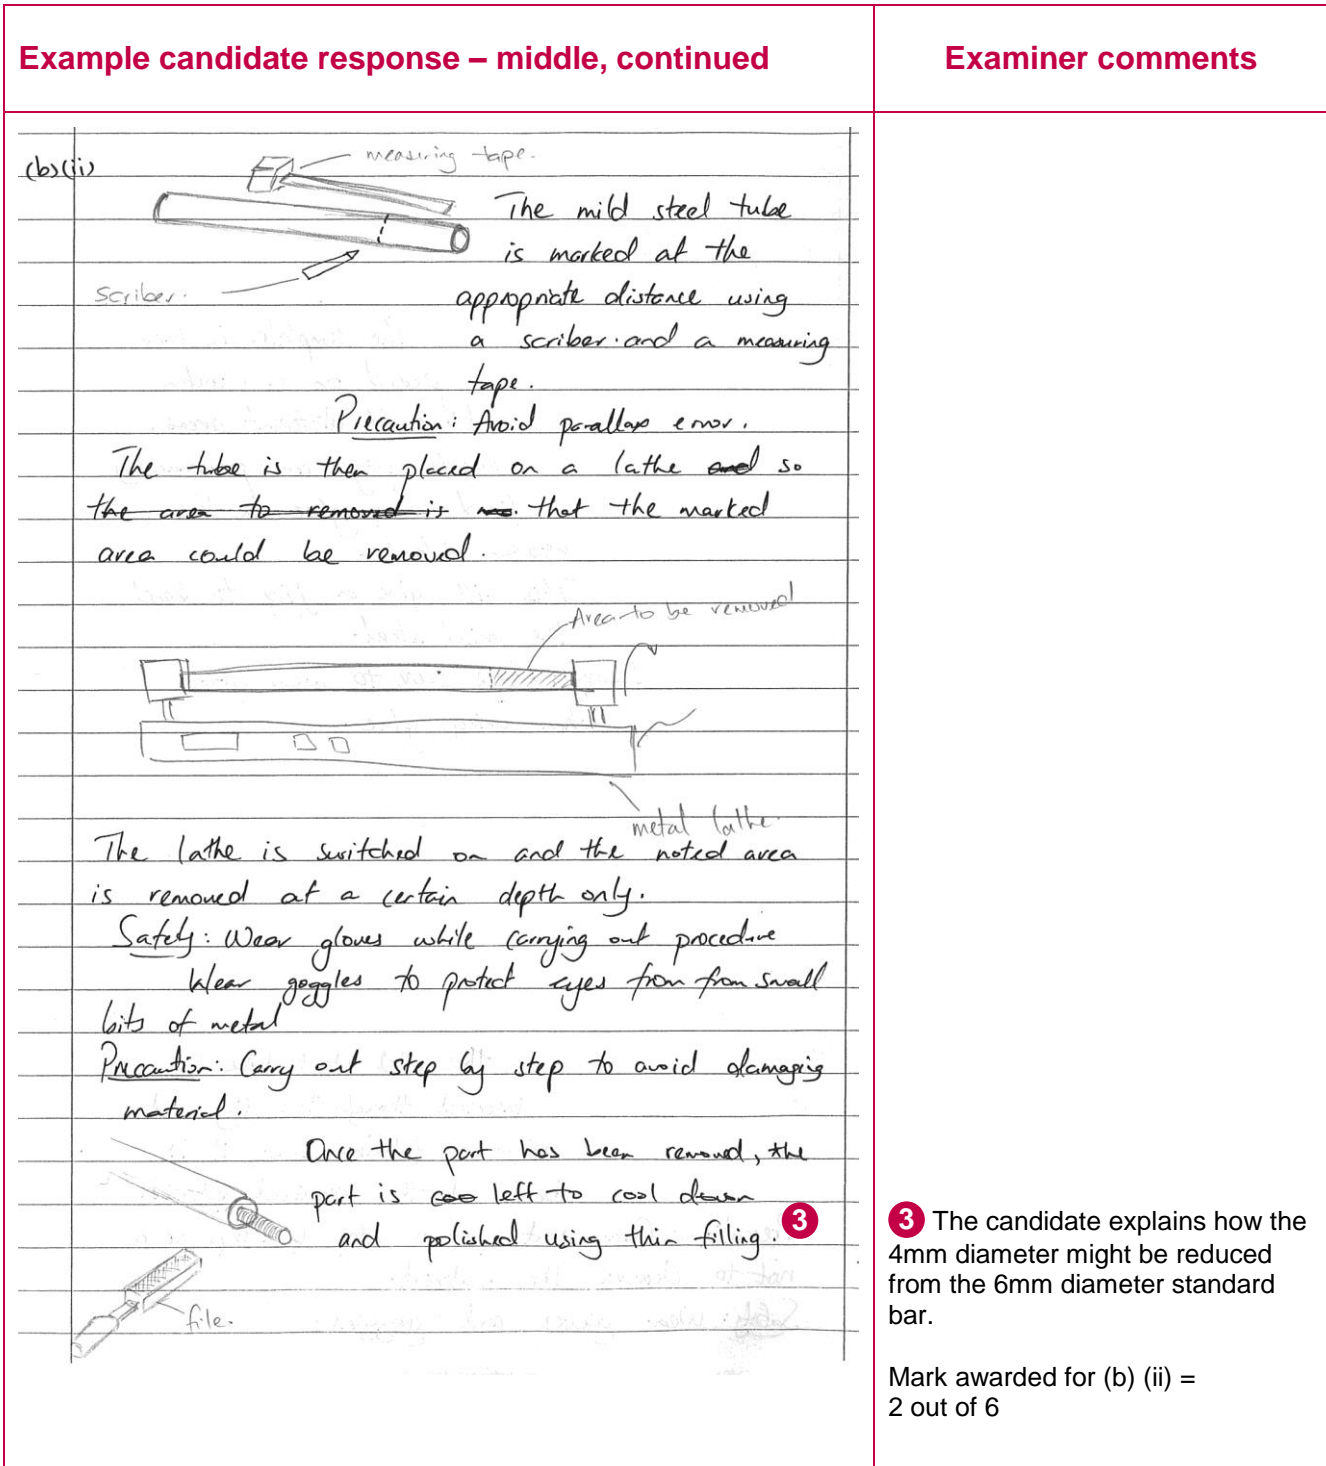 Example candidate response – middle, continued
Examiner comments
(b)(ii)
measuring tape.
The mild steel tube
is marked at the
scriber.
appropriate distance using
a scriber and a measuring
tape.
Precaution: Avoid parallax error.
The tube is then placed on a lathe and so
the area to removed is that the marked
area could be removed.
Area to be removed
metal lathe.
The lathe is switched on and the noted area
is removed at a certain depth only.
Safety: Wear gloves while carrying out procedure
Wear goggles to protect eyes from from small
bits of metal
Precaution: Carry out step by step to avoid damaging
material.
Once the part has been removed, the
part is coo left to cool down
and polished using thin filling. 3
file.
3 The candidate explains how the
4mm diameter might be reduced
from the 6mm diameter standard
bar.
Mark awarded for (b) (ii) =
2 out of 6